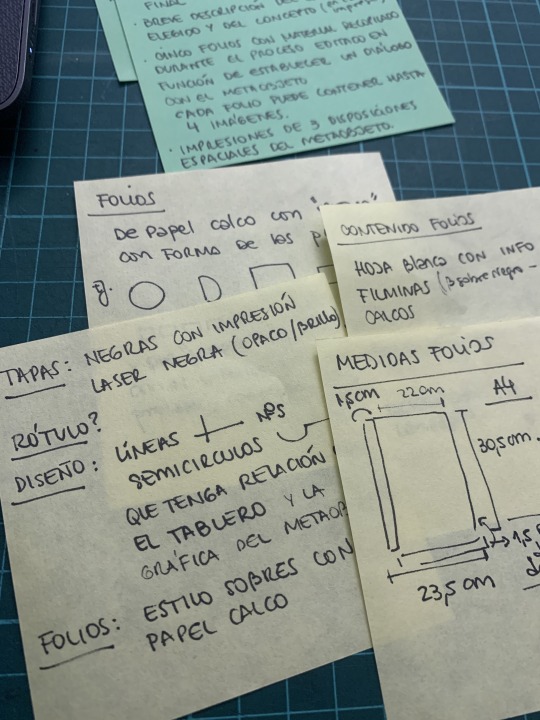 FINAL
• BREVE DESCRIPCIÓN DEL
ELEGIDO Y DEL CONCEPTO
• CINCO FOLIOS CON MATERIAL RECOPILADO
DURANTE EL PROCESO EDITADO EN
FUNCIÓN DE ESTABLECER UN DIÁLOGO
CON EL METAOBJETO
CADA FOLIO PUEDE CONTENER HASTA
4 IMÁGENES.
• IMPRESIONES DE 3 DISPOSICIONES
ESPACIALES DEL METAOBJETO.
FOLIOS
DE PAPEL CALCO CON
CON FORMA DE LOS P
Ej.
CONTENIDO FOLIOS
HOJA BLANCA CON INFO
FILMINAS (3 sobre negro –
CALCOS
TAPAS: NEGRAS CON IMPRESIÓN
LASER NEGRA (OPACO/BRILLO)
RÓTULO?
DISEÑO: LÍNEAS NºS
SEMICIRCULOS
QUE TENGA RELACIÓN
EL TABLERO Y LA
GRÁFICA DEL METAOB
FOLIOS: ESTILO SOBRES CON
PAPEL CALCO
MEDIDAS FOLIOS
1,5cm 22cm A4
30,5cm.
1,5
23,5cm